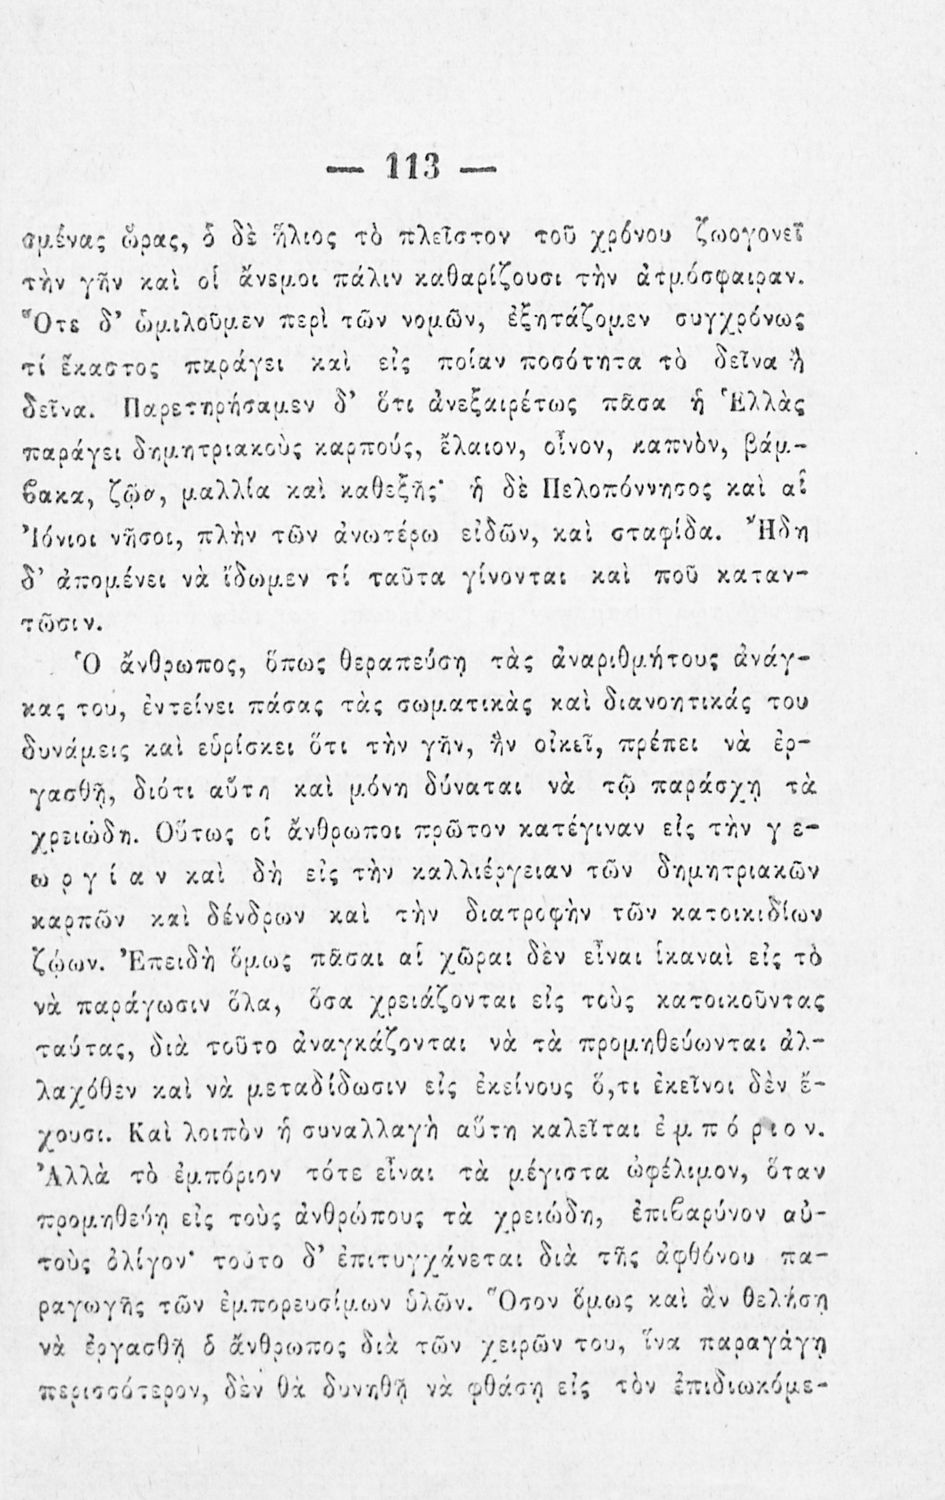 — 113 —
σμένας ὥρας, ὁ δὲ ἥλιος τὸ πλεῖστον τοῦ χρόνου ζωογονεῖ
τὴν γῆν καὶ οἱ ἄνεμοι πάλιν καθαρίζουσι τὴν ἀτμόσφαιραν.
Ὅτε δ' ὡμιλοῦμεν περὶ τῶν νομῶν, ἐξητάζομεν συγχρόνως
τί ἕκαστος παράγει καὶ εἰς ποίαν ποσότητα τὸ δεῖνα ἢ
δεῖνα. Παρετηρήσαμεν δ' ὅτι ἀνεξαιρέτως πᾶσα ἡ Ἑλλὰς
παράγει δημητριακοὺς καρπούς, ἔλαιον, οἶνον, καπνὸν, βάμ-
ϐακα, ζῷα, μαλλία καὶ καθεξῆς· ἡ δὲ Πελοπόννησος καὶ αἱ
Ἰόνιοι νῆσοι, πλὴν τῶν ἀνωτέρω εἰδῶν, καὶ σταφίδα. Ἤδη
δ' ἀπομένει νὰ ἴδωμεν τί ταῦτα γίνονται καὶ ποῦ καταν-
τῶσιν.
Ὁ ἄνθρωπος, ὅπως θεραπεύσῃ τὰς ἀναριθμήτους ἀνάγ-
κας του, ἐντείνει πάσας τὰς σωματικὰς καὶ διανοητικάς του
δυνάμεις καὶ εὑρίσκει ὅτι τὴν γῆν, ἣν οἰκεῖ, πρέπει νὰ ἐρ-
γασθῇ, διότι αὕτη καὶ μόνη δύναται νὰ τῷ παράσχῃ τὰ
χρειώδη. Οὕτως οἱ ἄνθρωποι πρῶτον κατέγιναν εἰς τὴν γ ε-
ω ρ γ ί α ν καὶ δὴ εἰς τὴν καλλιέργειαν τῶν δημητριακῶν
καρπῶν καὶ δένδρων καὶ τὴν διατροφὴν τῶν κατοικιδίων
ζώων. Ἐπειδὴ ὅμως πᾶσαι αἱ χῶραι δὲν εἶναι ἱκαναὶ εἰς τὸ
νὰ παράγωσιν ὅλα, ὅσα χρειάζονται εἰς τοὺς κατοικοῦντας
ταύτας, διὰ τοῦτο ἀναγκάζονται νὰ τὰ προμηθεύωνται ἀλ-
λαχόθεν καὶ νὰ μεταδίδωσιν εἰς ἐκείνους ὅ,τι ἐκεῖνοι δὲν ἔ-
χουσι. Καὶ λοιπὸν ἡ συναλλαγὴ αὕτη καλεῖται ἐ μ π ό ρ ι ο ν.
Ἀλλὰ τὸ ἐμπόριον τότε εἶναι τὰ μέγιστα ὠφέλιμον, ὅταν
προμηθεύῃ εἰς τοὺς ἀνθρώπους τὰ χρειώδη, ἐπιϐαρύνον αὐ-
τοὺς ὀλίγον· τοῦτο δ' ἐπιτυγχάνεται διὰ τῆς ἀφθόνου πα-
ραγωγῆς τῶν ἐμπορευσίμων ὑλῶν. Ὅσον ὅμως καὶ ἂν θελήσῃ
νὰ ἐργασθῇ ὁ ἄνθρωπος διὰ τῶν χειρῶν του, ἵνα παραγάγῃ
περισσότερον, δὲν θὰ δυνηθῇ νὰ φθάσῃ εἰς τὸν ἐπιδιωκόμε-